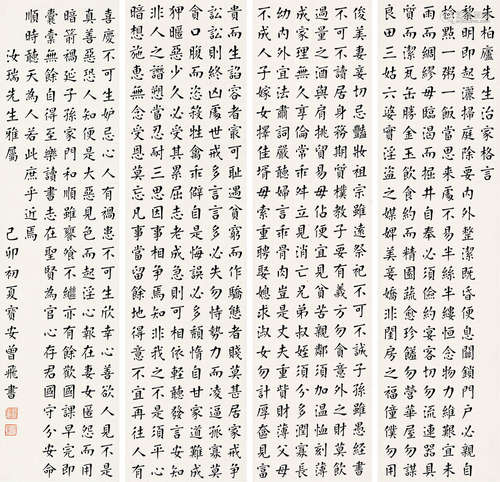 朱柏廬先生治家格言
黎明即起灑掃庭除要內外整潔既昏便息關鎖門户必親自
檢點一粥一飯當思來處不易半絲半縷恒念物力維艱宜未
雨而綢繆毋臨渴而掘井自奉必須儉約宴客切勿流連器具
質而潔瓦缶勝金玉飲食約而精園蔬愈珍饈勿營華屋勿謀
良田三姑六婆實淫盜之媒婢美妾嬌非閨房之福僮僕勿用
俊美妻妾切忌豔妝祖宗雖遠祭祀不可不誠子孫雖愚經書
不可不讀居身務期質樸教子要有義方勿貪意外之財莫飲
過量之酒與肩挑貿易毋佔便宜見貧苦親鄰須加溫恤刻薄
成家理無久享倫常乖舛立見消亡兄弟叔姪須分多潤寡長
幼內外宜法肅詞嚴聽婦言乖骨肉豈是丈夫重貲財薄父母
不成人子嫁女擇佳壻毋索重聘娶媳求淑女勿計厚奩見富
貴而生諂容者最可恥遇貧窮而作驕態者賤莫甚居家戒爭
訟訟則終凶處世戒多言言多必失勿恃勢力而凌逼孤寡勿
貪口腹而恣殺牲禽乖僻自是悔誤必多頹惰自甘家道難成
狎暱惡少久必受其累屈志老成急則可相依輕聽發言安知
非人之譖愬當忍耐三思因事相爭焉知非我之不是須平心
暗想施惠無念受恩莫忘凡事當留餘地得意不宜再往人有
喜慶不可生妒忌心人有禍患不可生欣幸心善欲人見不是
真善惡恐人知便是大惡見色而起淫心報在妻女匿怨而用
暗箭禍延子孫家門和順雖饔飧不繼亦有餘歡國課早完即
囊橐無餘自得至樂讀書志在聖賢為官心存君國守分安命
順時聽天為人若此庶乎近焉
汝瑞先生雅屬 己卯初夏寶安曾飛書